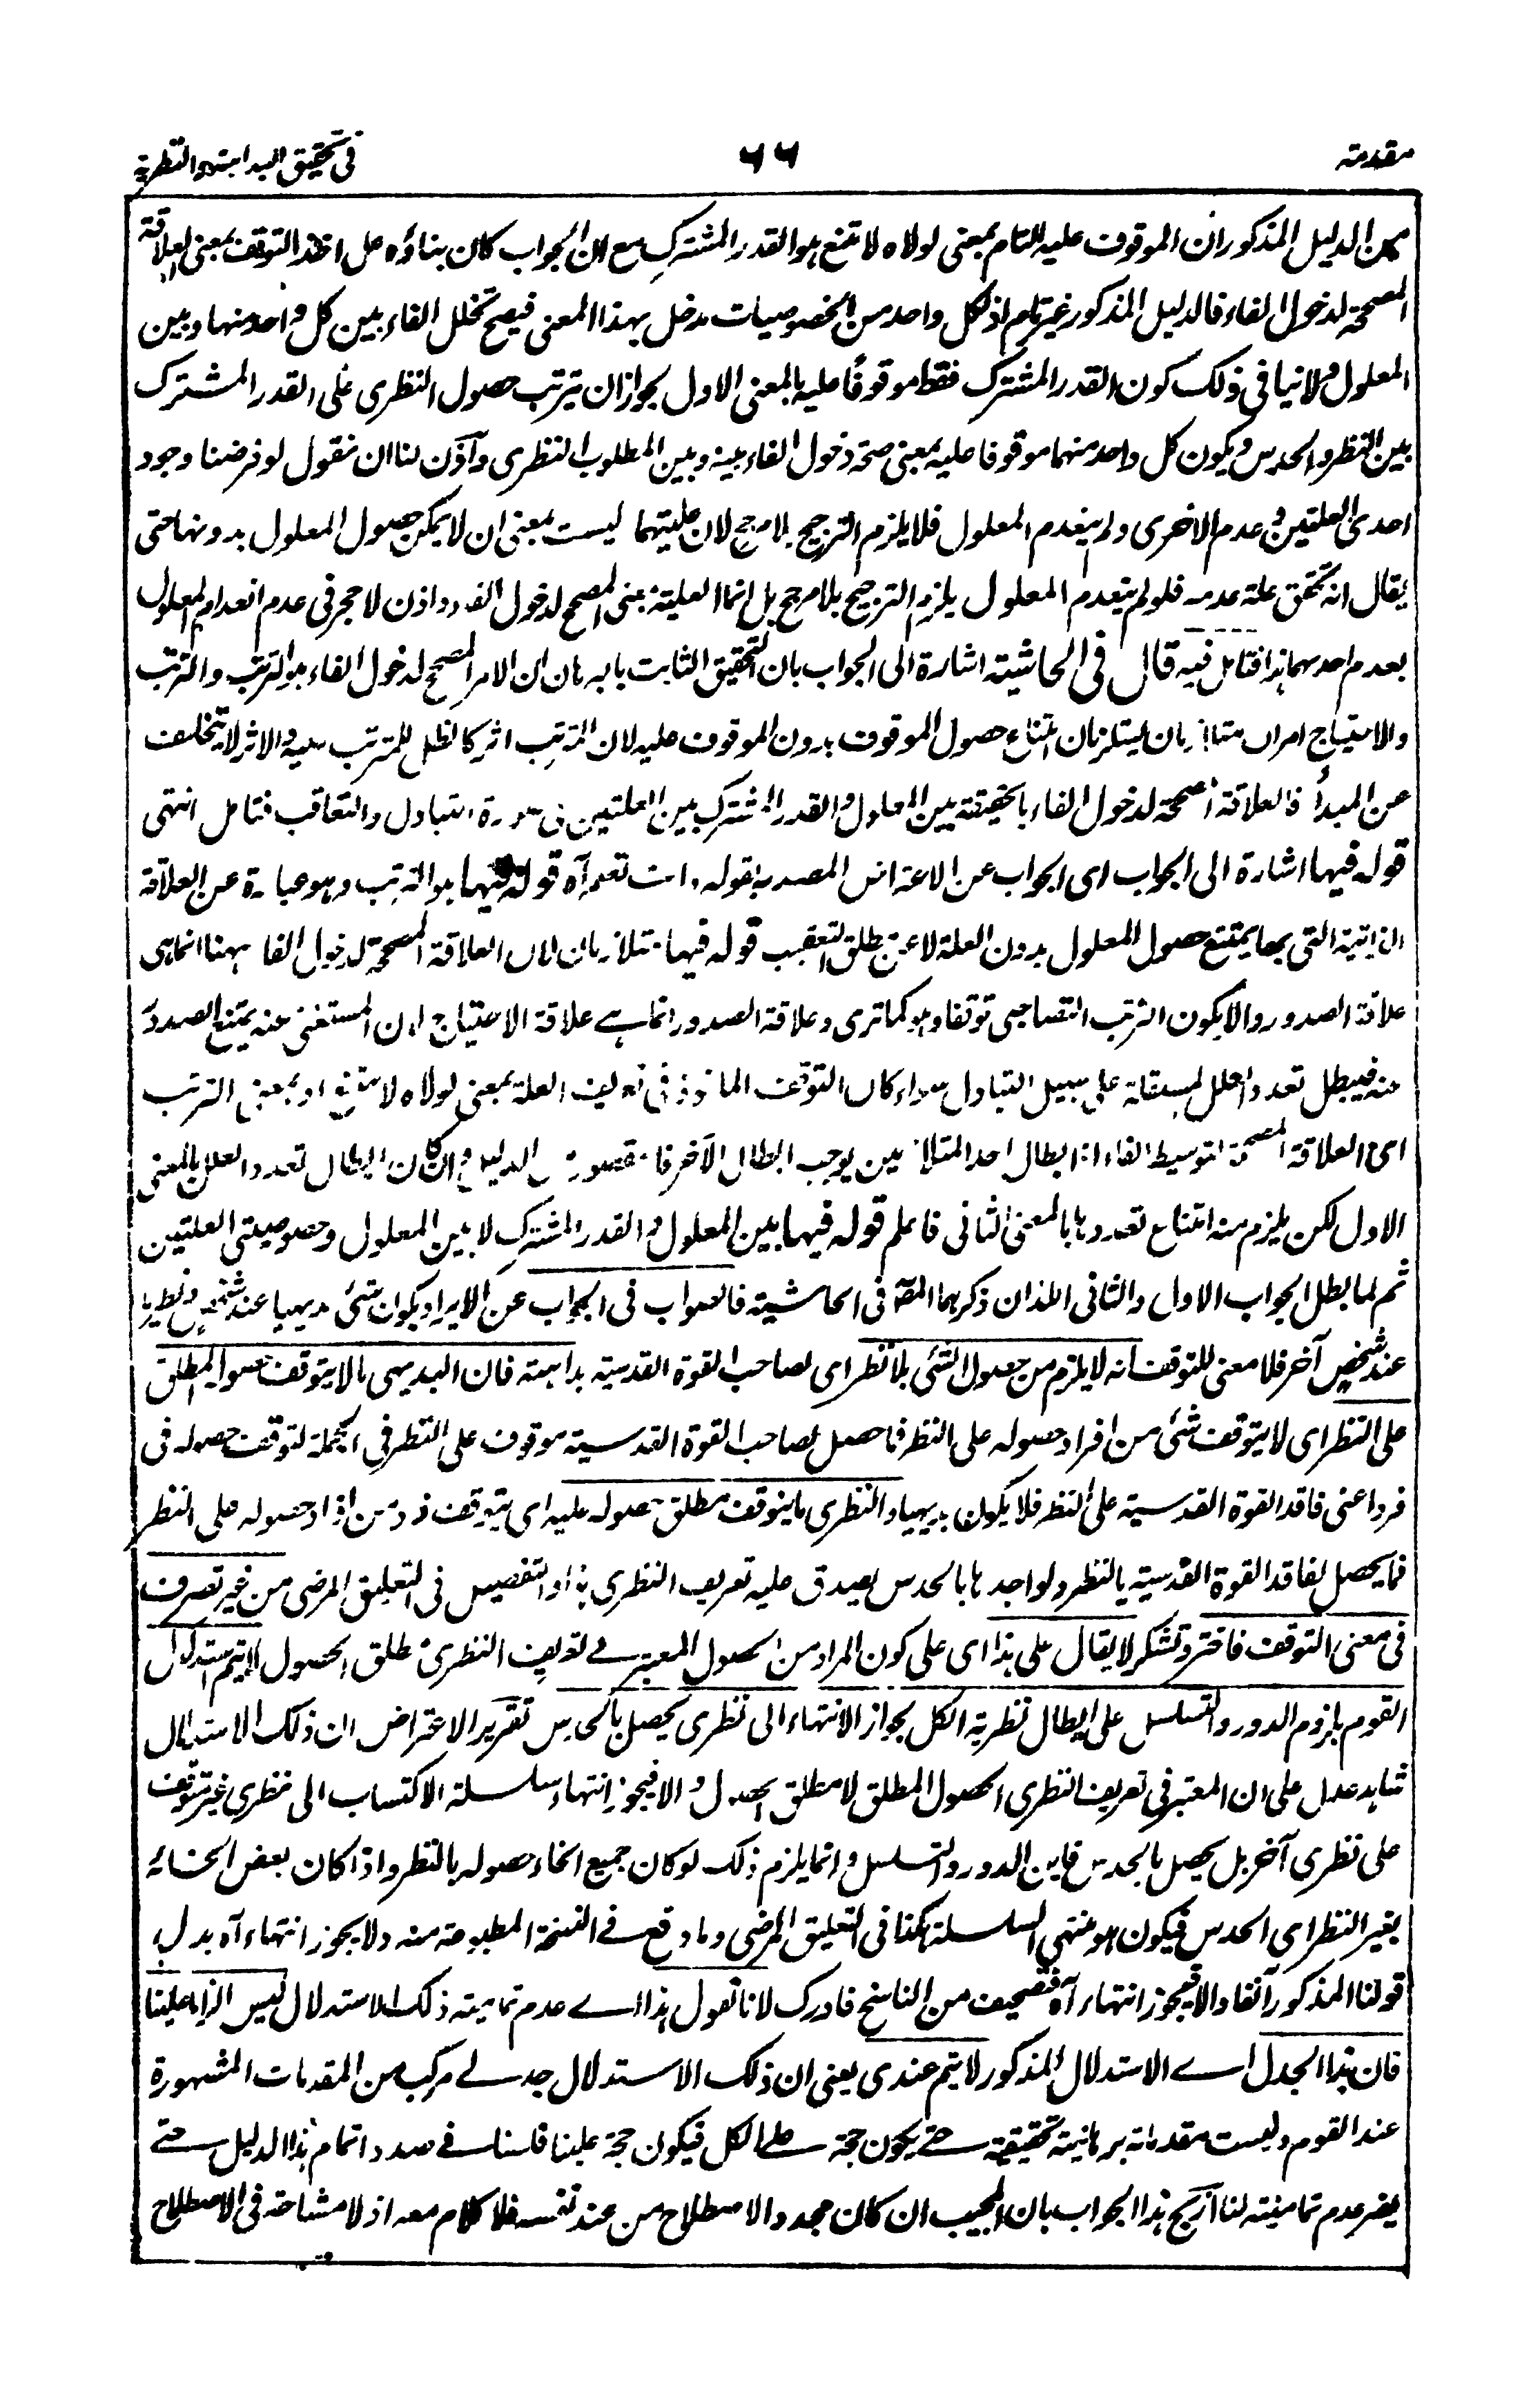 مقدمة
٦٦
فى تحقيق البداهة والنظرية
من الدليل المذكور ان الموقوف عليه التام بمعنى لولاه لامتنع هو القدر المشترك مع ان الجواب كان بناؤه على اخذ التوقف بمعنى العلاقة
المصححة لدخول الفاء فالدليل المذكور غير تام اذ لكل واحد من الخصوصيات مدخل بهذا المعنى فيصح تخلل الفاء بين كل واحد منها وبين
المعلول ولا ينافى ذلك كون القدر المشترك فقط موقوفا عليه بالمعنى الاول لجواز ان يترتب حصول النظرى على القدر المشترك
بين النظر والحدس ويكون كل واحد منهما موقوفا عليه بمعنى صحة دخول الفاء بينه وبين المطلوب النظرى وآذن لنا ان نقول لو فرضنا وجود
احدى العلتين وعدم الاخرى ولم ينعدم المعلول فلا يلزم الترجيح بلا مرجح لان عليتهما ليست بمعنى ان لا يمكن حصول المعلول بدونها حتى
يقال انه تحقق علة عدمه فلو لم ينعدم المعلول يلزم الترجيح بلا مرجح بل انما العلية بمعنى المصحح لدخول الفاء واذن لا حجر فى عدم انعدام المعلول
بعدم احدهما هذا فتامل فيه قال فى الحاشية اشارة الى الجواب بان التحقيق الثابت بالبرهان ان الامر المصحح لدخول الفاء هو الترتب والترتب
والاحتياج امران متلازمان يستلزمان امتناع حصول الموقوف بدون الموقوف عليه لان المترتب اثر كالظل للمترتب عليه والاثر لا يتخلف
عن المبدأ فالعلاقة المصححة لدخول الفاء بالحقيقة بين المعلول والقدر المشترك بين العلتين فى صورة التبادل والتعاقب فتامل انتهى
قوله فيها اشارة الى الجواب اى الجواب عن الاعتراض المصدر بقوله وانت تعلم آه قوله فيها هو الترتب وهو عبارة عن العلاقة
الذاتية التى بها يمتنع حصول المعلول بدون العلة لا عن مطلق التعقيب قوله فيها متلازمان لان العلاقة المصححة لدخول الفاء ههنا انما هى
علاقة الصدور والا يكون الترتب التصاحبى توقفا وهو كما ترى وعلاقة الصدور انما هى علاقة الاحتياج لان المستغنى عنه يمتنع الصدور
عنه فيبطل تعدد العلل المستقلة على سبيل التبادل سواء كان التوقف الماخوذ فى تعريف العلة بمعنى لولاه لامتنع او بمعنى الترتب
اى العلاقة المصححة لتوسيط الفاء اذ ابطال احد المتلازمين يوجب ابطال الآخر فالمقصود من الدليل وان كان ابطال تعدد العلل بالمعنى
الاول لكن يلزم منه امتناع تعددها بالمعنى الثانى فاعلم قوله فيها بين المعلول والقدر المشترك لا بين المعلول وخصوصيتى العلتين
ثم لما بطل الجواب الاول والثانى اللذان ذكرهما المصـ فى الحاشية فالصواب فى الجواب عن الايراد بكون شئ بديهيا عند شخص ونظريا
عند شخص آخر فلا معنى للتوقف انه لا يلزم من حصول الشئ بلا نظر اى لصاحب القوة القدسية بداهته فان البديهى ما لا يتوقف حصوله المطلق
على النظر اى لا يتوقف شئ من افراد حصوله على النظر فما حصل لصاحب القوة القدسية موقوف على النظر فى الجملة لتوقف حصوله فى
فرد اعنى فاقد القوة القدسية على النظر فلا يكون بديهيا والنظرى ما يتوقف مطلق حصوله عليه اى يتوقف فرد من افراد حصوله على النظر
فما يحصل لفاقد القوة القدسية بالنظر ولواجدها بالحدس يصدق عليه تعريف النظرى هذا والتفصيل فى التعليق المرضى من غير تصرف
فى معنى التوقف فاختر وتشكر لا يقال على هذا اى على كون المراد من الحصول المعتبر فى تعريف النظرى مطلق الحصول لا يتم استدلال
القوم بلزوم الدور والتسلسل على ابطال نظرية الكل لجواز الانتهاء الى نظرى يحصل بالحدس تقرير الاعتراض ان ذلك الاستدلال
شاهد عدل على ان المعتبر فى تعريف النظرى الحصول المطلق لا مطلق الحصول والا فيجوز انتهاء سلسلة الاكتساب الى نظرى غير متوقف
على نظرى آخر بل يحصل بالحدس فاين الدور والتسلسل وانما يلزم ذلك لو كان جميع انحاء حصوله بالنظر واذا كان بعض انحائه
بغير النظر اى الحدس فيكون هو منتهى السلسلة هكذا فى التعليق المرضى وما وقع فى النسخة المطبوعة منه ولا يجوز انتهاء آه بدل
قولنا المذكور آنفا والا فيجوز انتهاء آه فتصحيف من الناسخ فادرك لانا نقول هذا اى عدم تمامية ذلك الاستدلال ليس الزاما علينا
فان هذا الجدل اى الاستدلال المذكور لا يتم عندى يعنى ان ذلك الاستدلال جدلى مركب من المقدمات المشهورة
عند القوم وليست مقدماته برهانية تحقيقية حتى يكون حجة على الكل فيكون حجة علينا فلسنا فى صدد اتمام هذا الدليل حتى
يضر عدم تماميته لنا ازيح هذا الجواب بان المجيب ان كان مجدد الاصطلاح من عند نفسه فلا كلام معه اذ لا مشاحة فى الاصطلاح